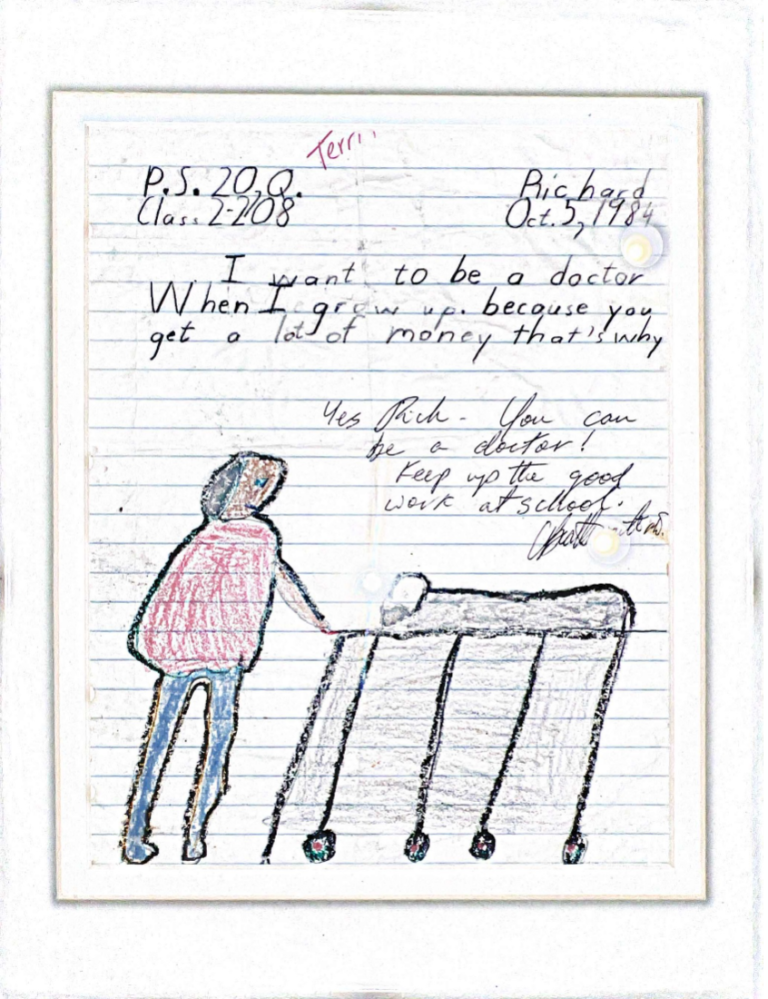 Terri
P.S. 20, Q. Richard
Class 2-208 Oct. 5, 1984
I want to be a doctor
When I grow up. because you
get a lot of money that's why
Yes Rich - You can
be a doctor!
Keep up the good
work at school.